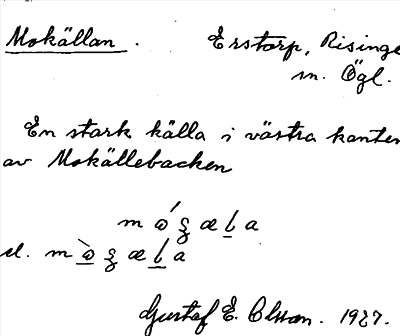 Mokällan. Erstorp, Risinge
sn. Ögl.
En stark källa i västra kanten
av Mokällebacken
el. m
Gustaf E. Olsson. 1927.